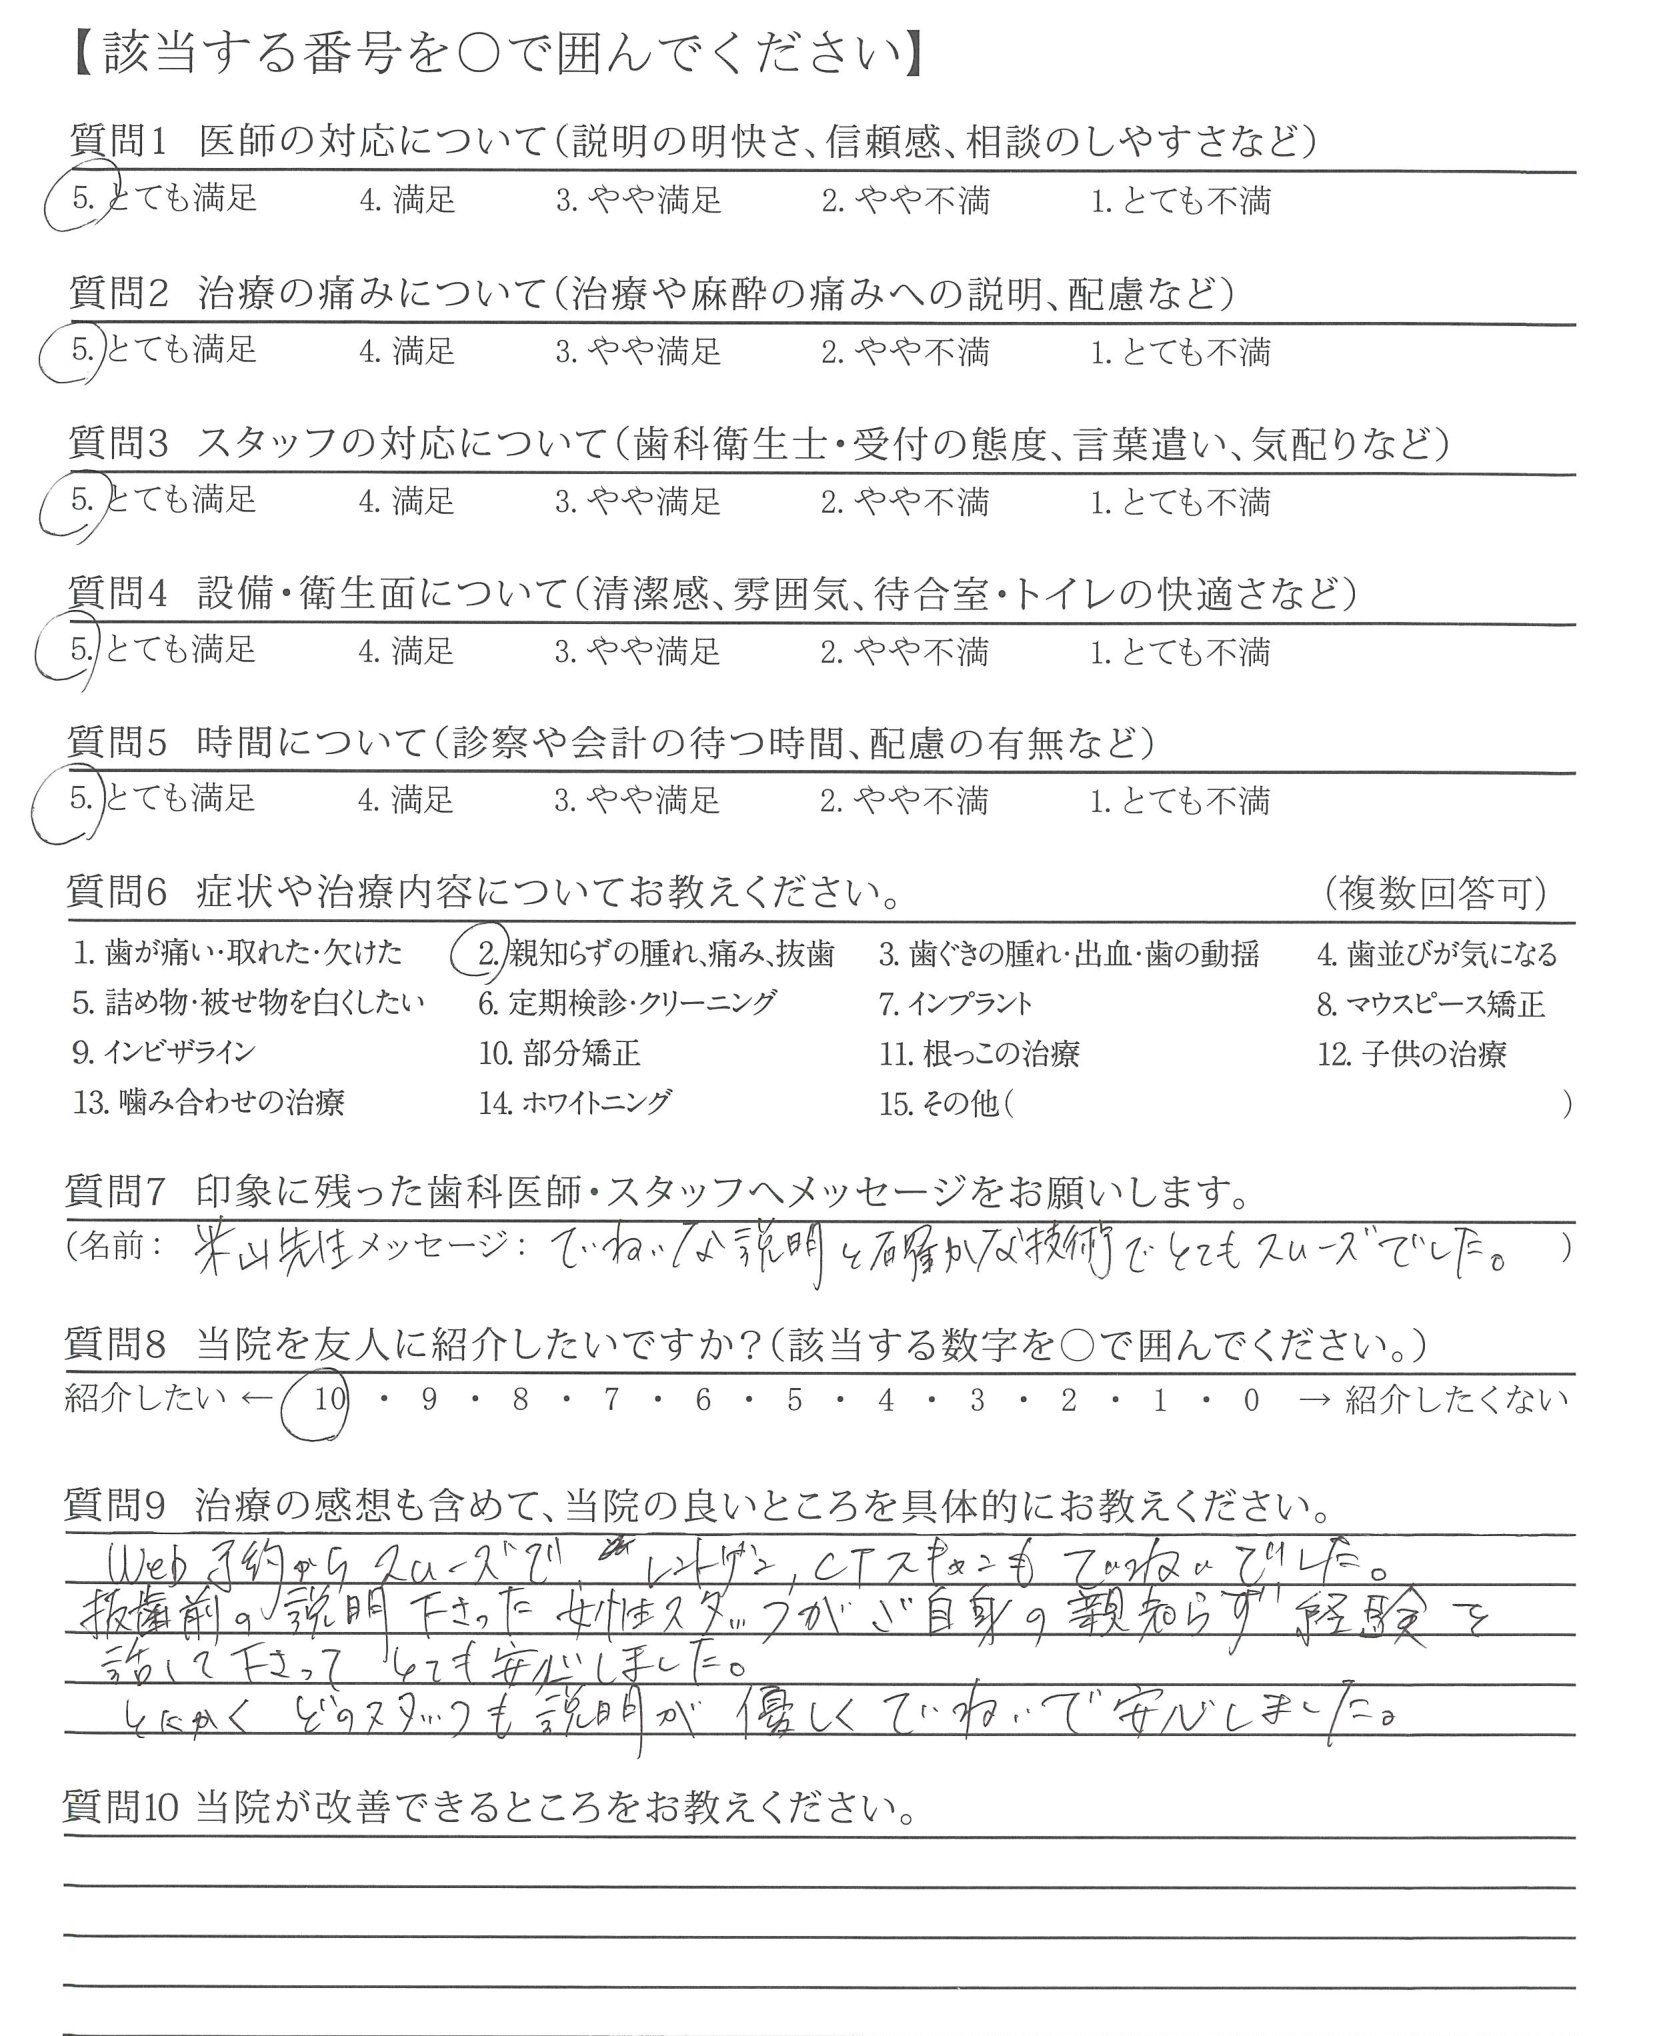 【該当する番号を○で囲んでください】
質問1 医師の対応について(説明の明快さ、信頼感、相談のしやすさなど)
5. とても満足 4. 満足 3. やや満足 2. やや不満 1. とても不満
質問2 治療の痛みについて(治療や麻酔の痛みへの説明、配慮など)
5. とても満足 4. 満足 3. やや満足 2. やや不満 1. とても不満
質問3 スタッフの対応について(歯科衛生士・受付の態度、言葉遣い、気配りなど)
5. とても満足 4. 満足 3. やや満足 2. やや不満 1. とても不満
質問4 設備・衛生面について(清潔感、雰囲気、待合室・トイレの快適さなど)
5. とても満足 4. 満足 3. やや満足 2. やや不満 1. とても不満
質問5 時間について(診察や会計の待つ時間、配慮の有無など)
5. とても満足 4. 満足 3. やや満足 2. やや不満 1. とても不満
質問6 症状や治療内容についてお教えください。 (複数回答可)
1. 歯が痛い・取れた・欠けた 2. 親知らずの腫れ、痛み、抜歯 3. 歯ぐきの腫れ・出血・歯の動揺 4. 歯並びが気になる
5. 詰め物・被せ物を白くしたい 6. 定期検診・クリーニング 7. インプラント 8. マウスピース矯正
9. インビザライン 10. 部分矯正 11. 根っこの治療 12. 子供の治療
13. 噛み合わせの治療 14. ホワイトニング 15. その他( )
質問7 印象に残った歯科医師・スタッフへメッセージをお願いします。
(名前: 米山先生 メッセージ: ていねいな説明と確かな技術でとてもスムーズでした。 )
質問8 当院を友人に紹介したいですか?(該当する数字を○で囲んでください。)
紹介したい ← 10 ・ 9 ・ 8 ・ 7 ・ 6 ・ 5 ・ 4 ・ 3 ・ 2 ・ 1 ・ 0 → 紹介したくない
質問9 治療の感想も含めて、当院の良いところを具体的にお教えください。
Web予約からスムーズで、レントゲン, CTスキャンもていねいでした。
抜歯前の説明下さった女性スタッフがご自身の親知らず経験を
話して下さってとても安心しました。
とにかくどのスタッフも説明が優しくていねいで安心しました。
質問10 当院が改善できるところをお教えください。